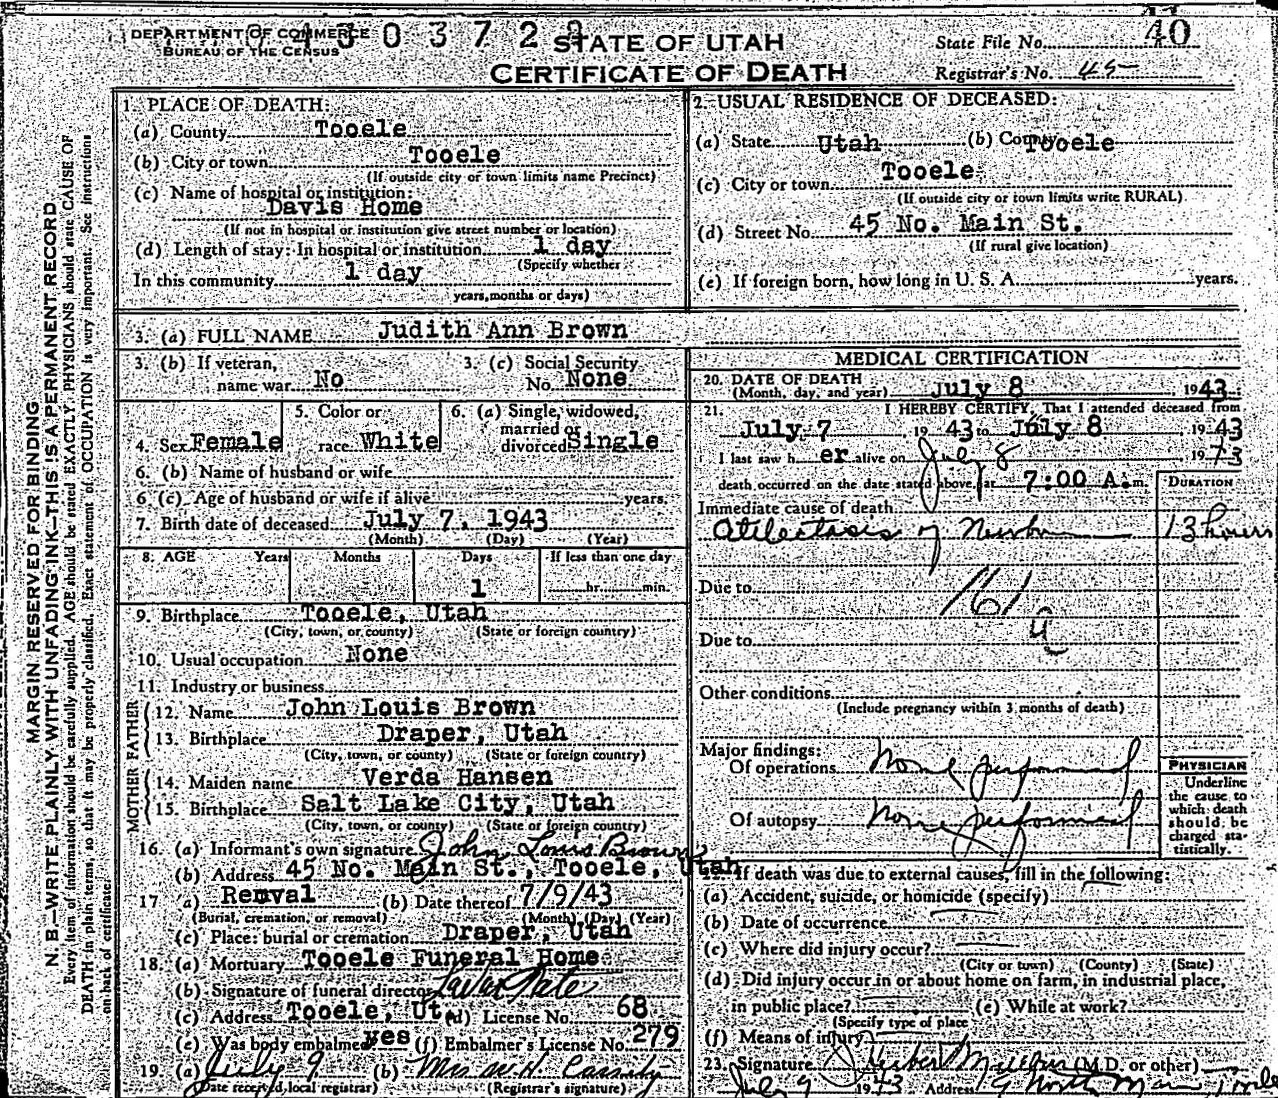 DEPARTMENT OF COMMERCE
BUREAU OF THE CENSUS
3 0 3 7 2
STATE OF UTAH
CERTIFICATE OF DEATH
State File No. 40
Registrar's No. 45
MARGIN RESERVED FOR BINDING
N. B.—WRITE PLAINLY WITH UNFADING INK—THIS IS A PERMANENT RECORD
Every item of information should be carefully supplied. AGE should be stated EXACTLY. PHYSICIANS should state CAUSE OF
DEATH in plain terms, so that it may be properly classified. Exact statement of OCCUPATION is very important. See instructions
on back of certificate.
1. PLACE OF DEATH:
(a) County Tooele
(b) City or town Tooele
(If outside city or town limits name Precinct)
(c) Name of hospital or institution:
Davis Home
(If not in hospital or institution give street number or location)
(d) Length of stay: In hospital or institution 1 day
(Specify whether
In this community 1 day
years, months or days)
2. USUAL RESIDENCE OF DECEASED:
(a) State Utah (b) County Tooele
(c) City or town Tooele
(If outside city or town limits write RURAL)
(d) Street No. 45 No. Main St.
(If rural give location)
(e) If foreign born, how long in U. S. A. years.
3. (a) FULL NAME Judith Ann Brown
3. (b) If veteran,
name war No
3. (c) Social Security
No. None
4. Sex Female
5. Color or
race White
6. (a) Single, widowed,
married or
divorced Single
6. (b) Name of husband or wife
6 (c). Age of husband or wife if alive years.
7. Birth date of deceased July 7, 1943
(Month) (Day) (Year)
8. AGE Years Months Days If less than one day
1 hr. min.
9. Birthplace Tooele, Utah
(City, town, or county) (State or foreign country)
10. Usual occupation None
11. Industry or business
FATHER
12. Name John Louis Brown
13. Birthplace Draper, Utah
(City, town, or county) (State or foreign country)
MOTHER
14. Maiden name Verda Hansen
15. Birthplace Salt Lake City, Utah
(City, town, or county) (State or foreign country)
16. (a) Informant's own signature John Louis Brown
(b) Address 45 No. Main St., Tooele, Utah
17 (a) Remval (b) Date thereof 7/9/43
(Burial, cremation, or removal) (Month) (Day) (Year)
(c) Place: burial or cremation Draper, Utah
18. (a) Mortuary Tooele Funeral Home
(b) Signature of funeral director
(c) Address Tooele, Ut. (d) License No. 68
(e) Was body embalmed yes (f) Embalmer's License No. 279
19. (a) July 9 (b) Mrs W.H. Cassity
(Date received local registrar) (Registrar's signature)
MEDICAL CERTIFICATION
20. DATE OF DEATH
(Month, day, and year) July 8 1943
21. I HEREBY CERTIFY, That I attended deceased from
July 7 19 43 to July 8 19 43
I last saw h er alive on July 8 19 43
death occurred on the date stated above, at 7:00 A. m.
DURATION
Immediate cause of death
Atilectasis of Newborn 13 hours
Due to
161
Due to
Other conditions
(Include pregnancy within 3 months of death)
Major findings:
Of operations None performed
Of autopsy None performed
PHYSICIAN
Underline
the cause to
which death
should be
charged sta-
tistically.
If death was due to external causes, fill in the following:
(a) Accident, suicide, or homicide (specify)
(b) Date of occurrence
(c) Where did injury occur?
(City or town) (County) (State)
(d) Did injury occur in or about home on farm, in industrial place,
in public place? (e) While at work?
(Specify type of place
(f) Means of injury
23. Signature Herbert (M.D. or other)
July 9 1943 Address 9 North Main, Tooele